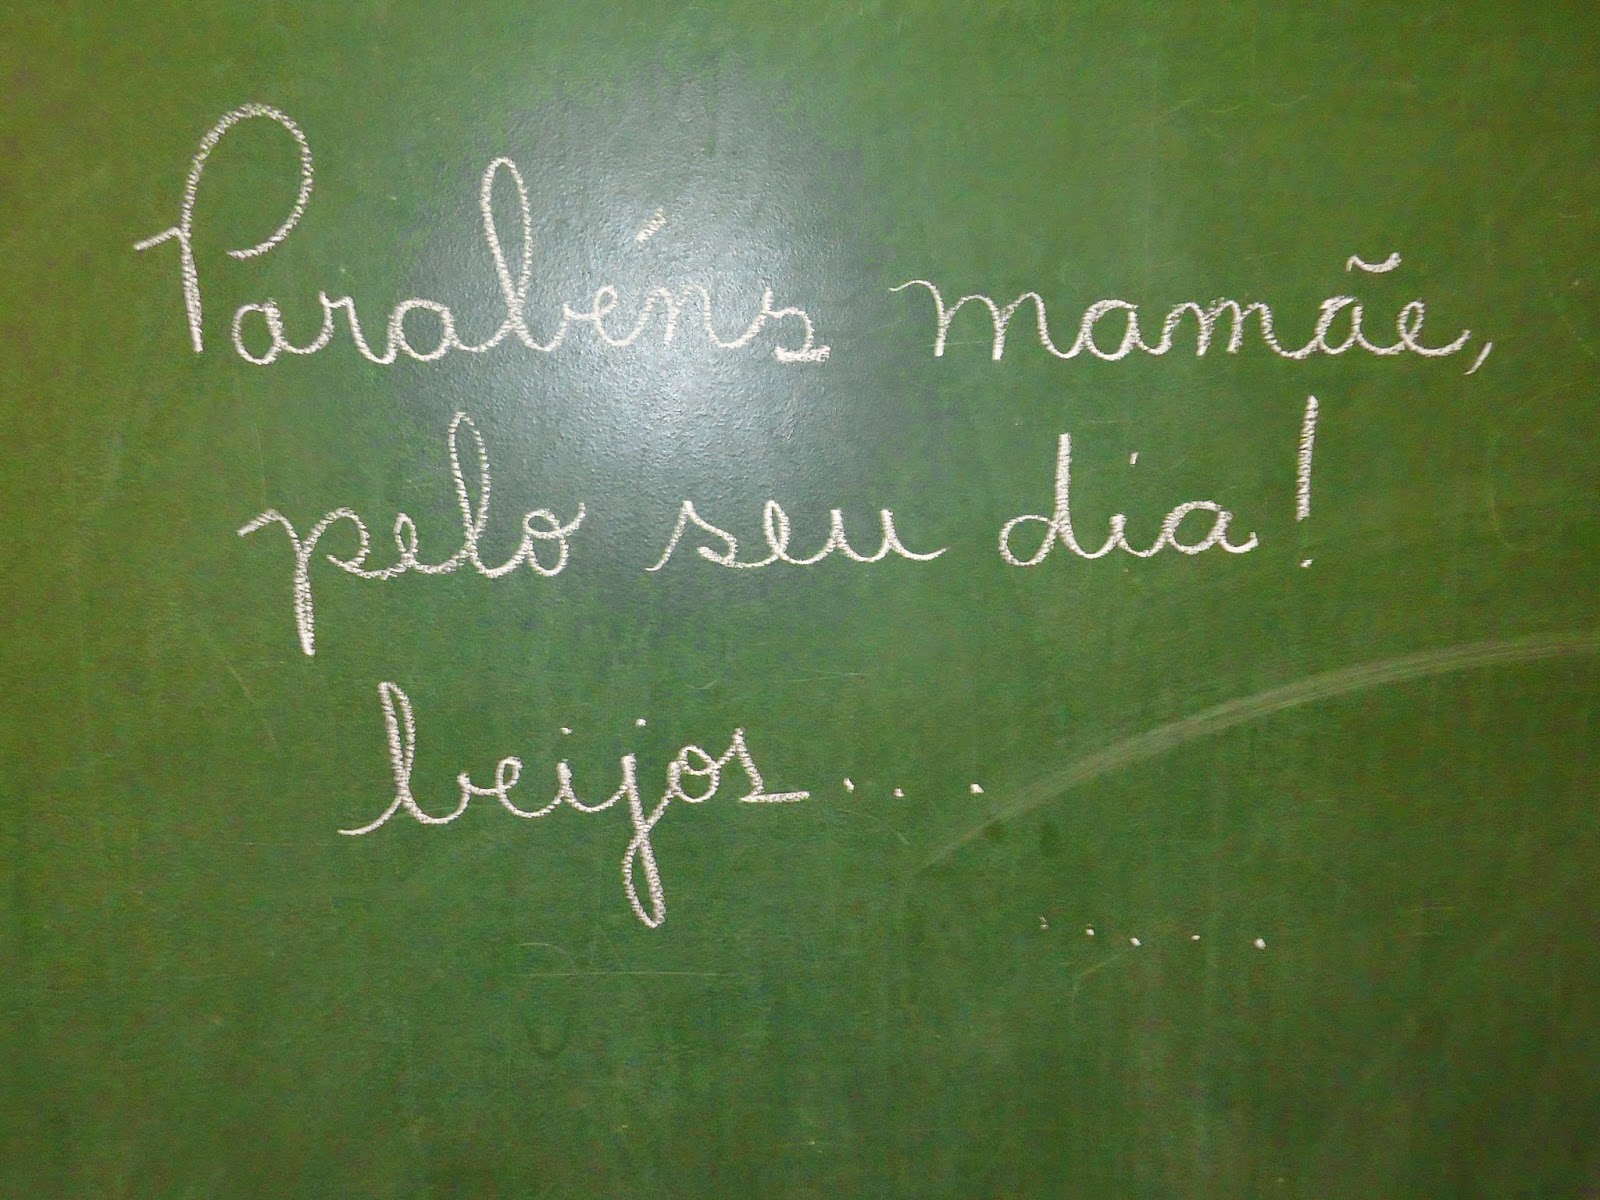 Parabéns mamãe,
pelo seu dia!
beijos...
.....